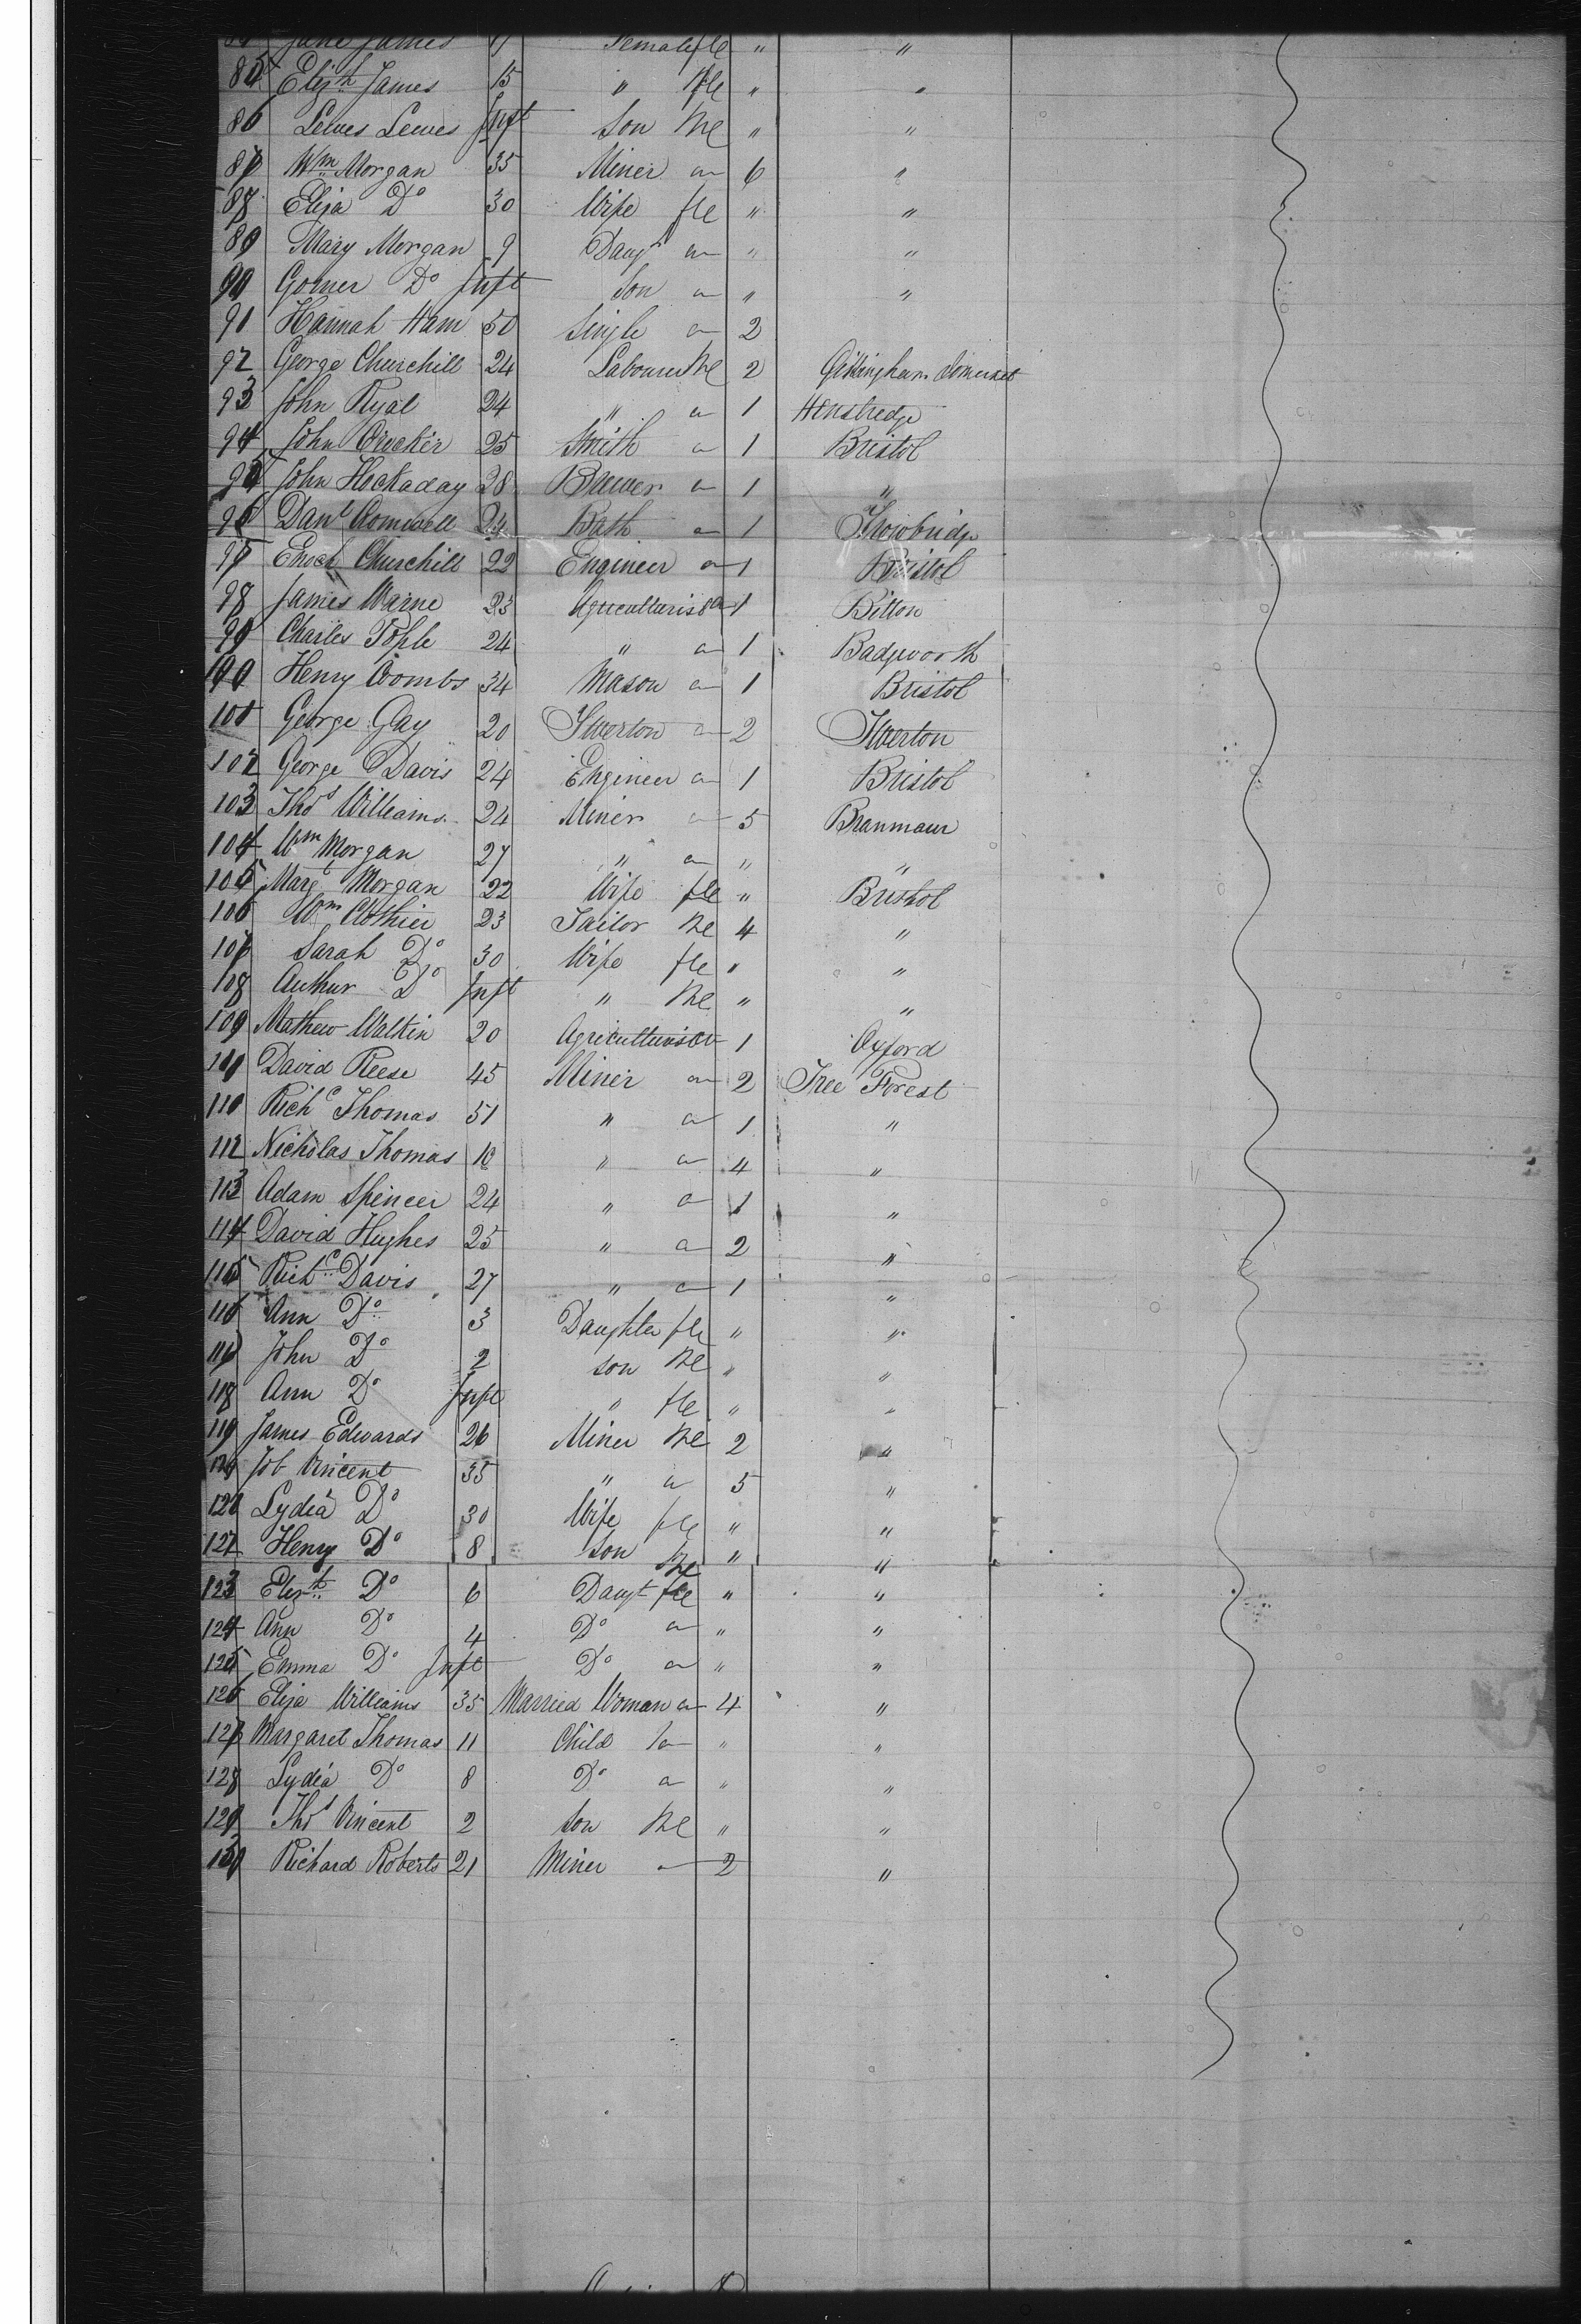 Jane James Female fle " "
85 Eliz.th James 15 " fle " "
86 Lewes Lewes Inft Son Me " "
87 Wm Morgan 35 Miner " 6 "
88 Eliza Do 30 Wife fle " "
89 Mary Morgan 9 Daugt " " "
90 Gomer Do Inft Son " " "
91 Hannah Ham 50 Single " 2
92 George Churchill 24 Labourer Me 2 Gillingham Somerset
93 John Ryal 24 " " 1 Henstredge
94 John Crocker 25 Smith " 1 Bristol
95 John Hockaday 28 Brewer " 1 "
96 Danl Comwell 24 Bath " 1 Trowbridge
97 Enoch Churchill 22 Engineer " 1 Bristol
98 James Warne 23 Agriculturist " 1 Bitton
99 Charles Pople 24 " " 1 Badgworth
100 Henry Coombs 34 Mason " 1 Bristol
101 George Gay 20 Twerton " 2 Twerton
102 George Davis 24 Engineer " 1 Bristol
103 Thos Williams 24 Miner " 5
104 Wm Morgan 27 " " " "
105 Margt Morgan 22 Wife fle " Bristol
106 Wm Clothier 23 Tailor Me 4 "
107 Sarah Do 30 Wife fle " "
108 Authur Do Inft " Me " "
109 Mathew Watkin 20 Agriculturist " 1 Oxford
110 David Reese 45 Miner " 2 Tree Forest
111 Richd Thomas 51 " " 1 "
112 Nicholas Thomas " " 4 "
113 Adam Spencer 24 " " 1 "
114 David Hughes 25 " " 2 "
115 Richd Davis 27 " " 1 "
116 Ann Do 3 Daughter fle " "
117 John Do 2 Son Me " "
118 Ann Do Inft " fle " "
119 James Edwards 26 Miner Me 2 "
120 Job Vincent 35 " " 5 "
121 Lydia Do 30 Wife fle " "
122 Henry Do 8 Son Me " "
123 Elizth Do 6 Daugt fle " "
124 Ann Do 4 Do " " "
125 Emma Do Inft Do " " "
126 Eliza Williams 35 Married Woman " 4 "
127 Margaret Thomas 11 Child " " "
128 Lydia Do 8 Do " " "
129 Thos Vincent 2 Son Me " "
130 Richard Roberts 21 Miner " 2 "